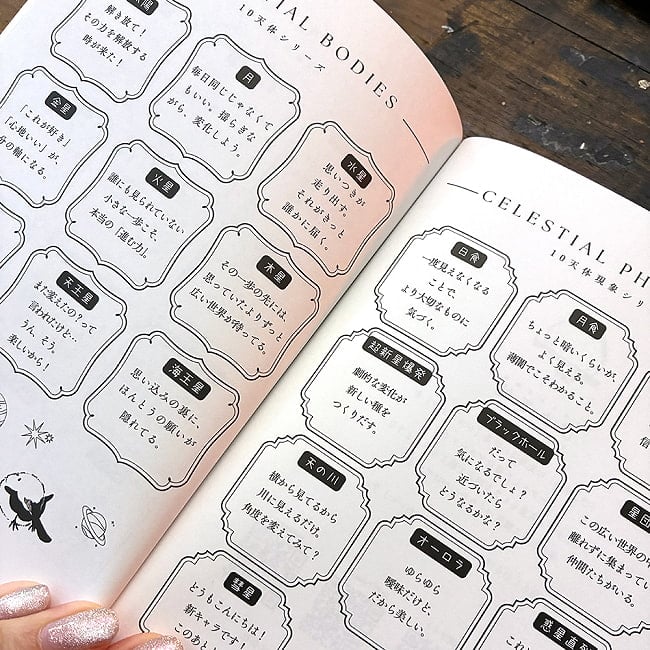 TIAL BODIES
10天体シリーズ
太陽
解き放て!
その力を解放する
時が来た!
月
毎日同じじゃなくて
もいい。揺らぎな
がら、変化しよう。
水星
思いつきが
走り出す。
それがきっと
誰かに届く。
金星
「これが好き」
「心地いい」が、
分の軸になる。
火星
誰にも見られていない
小さな一歩こそ、
本当の「進む力」。
木星
その一歩の先には、
思っていたよりずっと
広い世界が待ってる。
天王星
また変えたの?って
言われたけど…
うん、そう。
楽しいから!
海王星
思い込みの裏に、
ほんとうの願いが
隠れてる。
CELESTIAL PH
10天体現象シリ
日食
一度見えなくなる
ことで、
より大切なものに
気づく。
月食
ちょっと暗いくらいが、
よく見える。
薄闇でこそわかること。
超新星爆発
劇的な変化が
新しい種を
つくりだす。
ブラックホール
だって
気になるでしょ?
近づいたら
どうなるかな?
信
天の川
横から見てるから
川に見えるだけ。
角度を変えてみて?
オーロラ
ゆらゆら
曖昧だけど、
だから美しい。
星団
この広い世界の中
離れずに集まってい
仲間たちがいる。
彗星
どうもこんにちは!
新キャラです!
このあと
惑星直列
これ